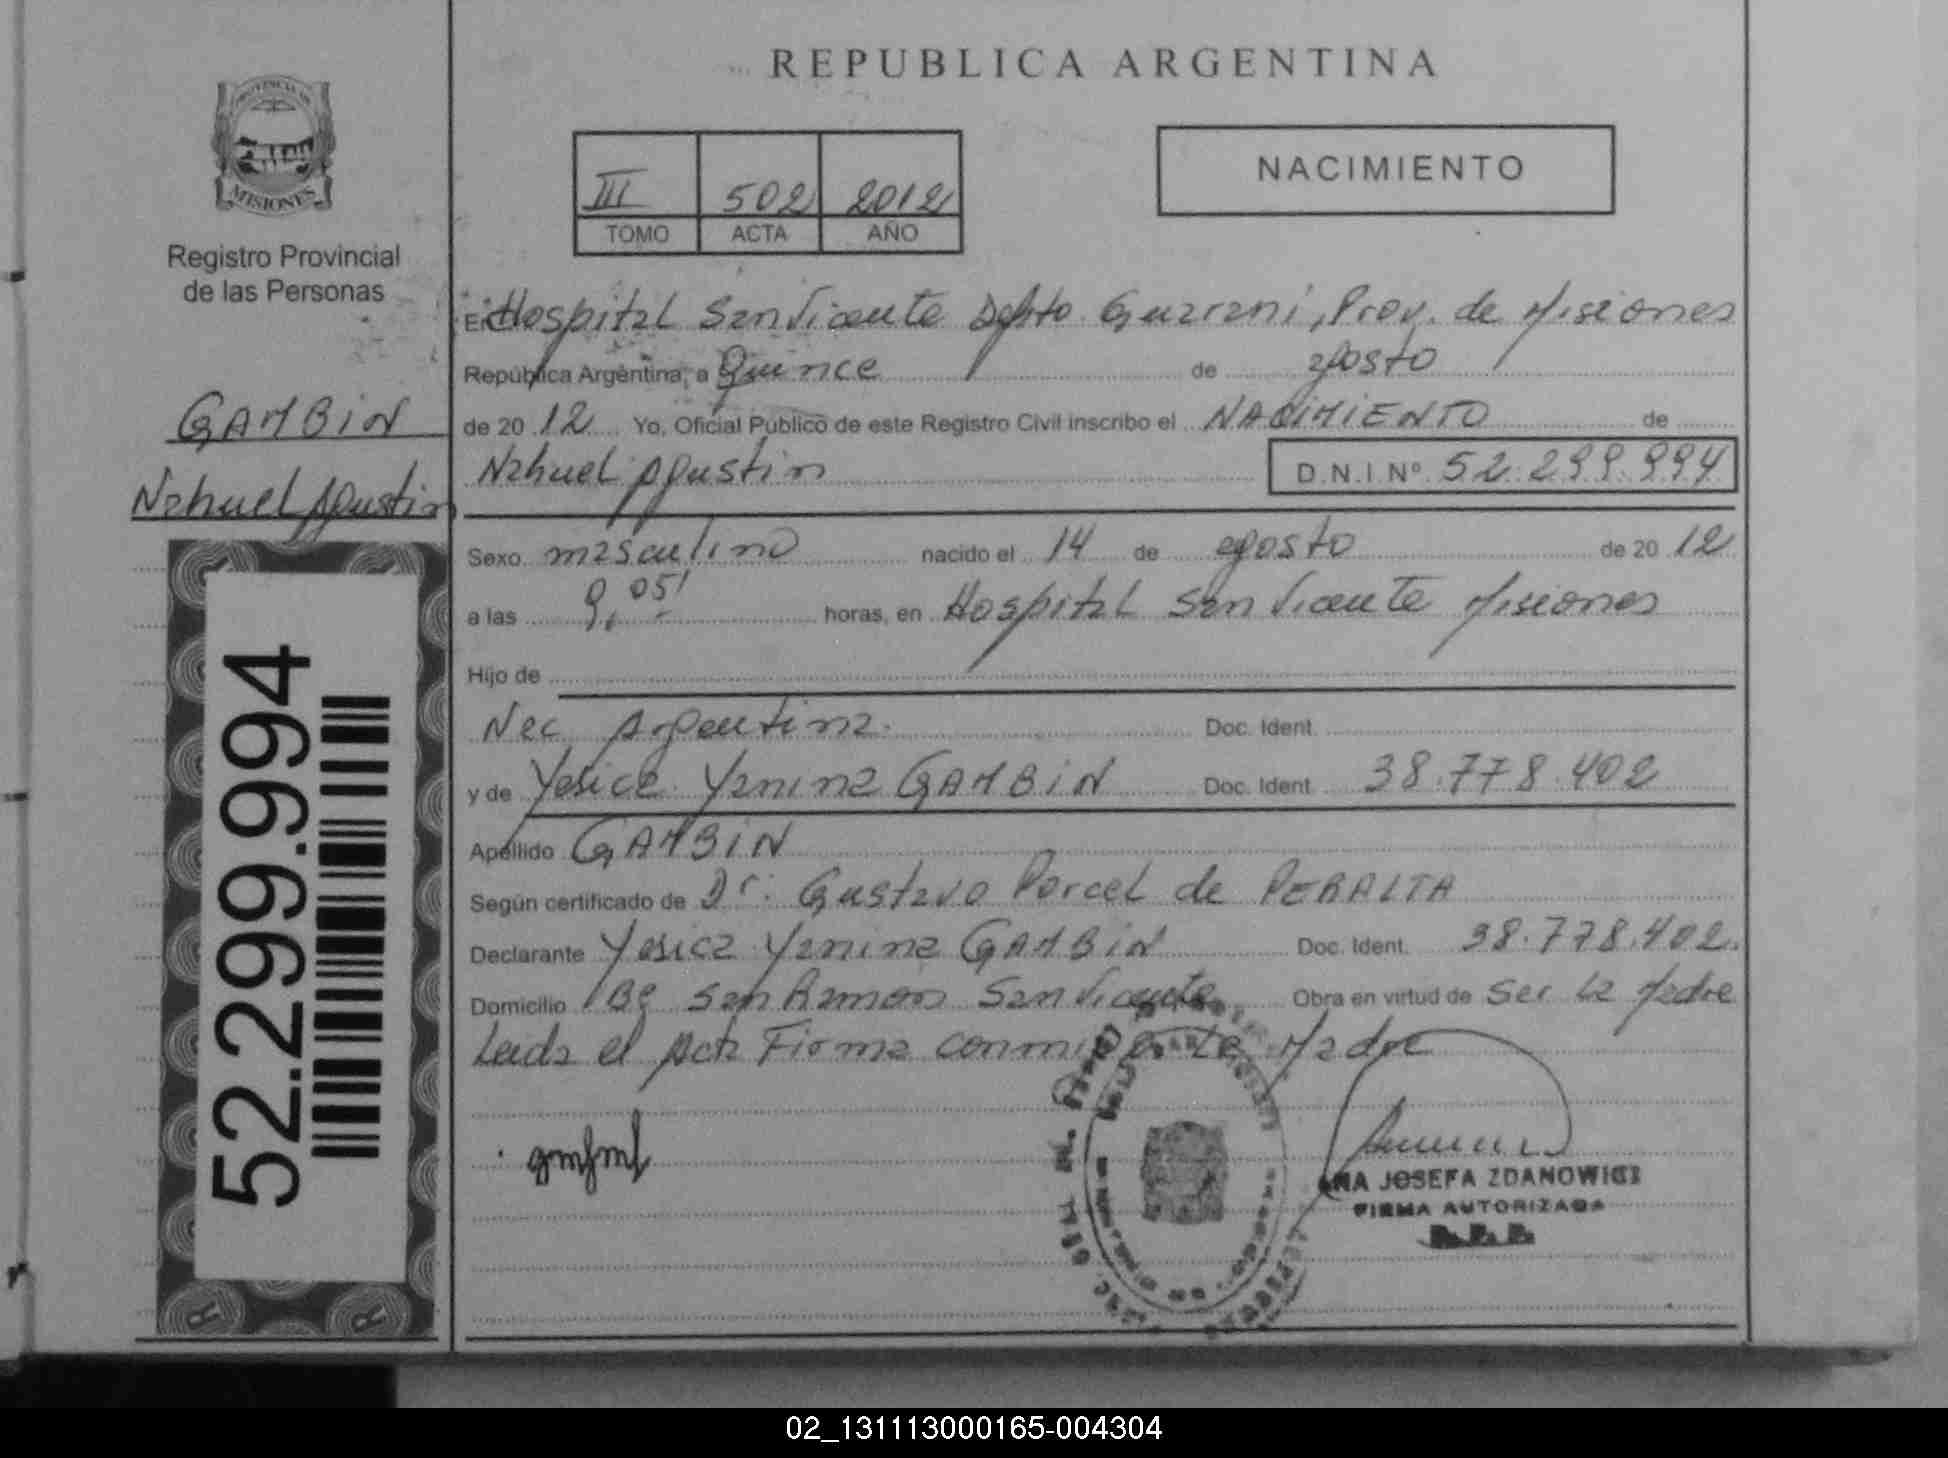 REPUBLICA ARGENTINA
PROVINCIA DE
MISIONES
Registro Provincial
de las Personas
GAMBIN
Nahuel Agustin
52.299.994
NACIMIENTO
III 502 2012
TOMO ACTA AÑO
En Hospital San Vicente Depto. Guarani, Prov. de Misiones
República Argentina, a Quince de agosto
de 20 12 Yo, Oficial Público de este Registro Civil inscribo el NACIMIENTO de
Nahuel Agustin D.N.I. Nº 52.299.994
Sexo masculino nacido el 14 de agosto de 20 12
a las 9,05' horas, en Hospital San Vicente Misiones
Hijo de
Nac. Argentina. Doc. Ident.
y de Yesica Yanina GAMBIN Doc. Ident. 38.778.402
Apellido GAMBIN
Según certificado de Dr. Gustavo Porcel de PERALTA
Declarante Yesica Yanina GAMBIN Doc. Ident. 38.778.402.
Domicilio Bº San Ramon San Vicente Obra en virtud de ser la Madre
Leida el Acta Firma conmigo la Madre
ANA JOSEFA ZDANOWICZ
FIRMA AUTORIZADA
02_131113000165-004304